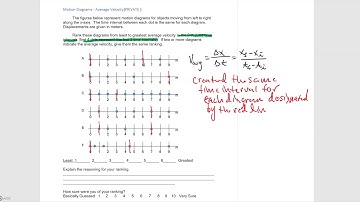 Motion Diagrams - Average Velocity[PRIVATE ]
The figures below represent motion diagrams for objects moving from left to right
along the x-axes. The time interval between each dot is the same for each diagram.
Displacements are given in meters.
Rank these diagrams from least to greatest average velocity
If two or more diagrams
indicate the average velocity, give them the same ranking.
A
B
C
D
E
F
Least 1 2 3 4 5 6 Greatest
Explain the reasoning for your ranking:
How sure were you of your ranking?
Basically Guessed 1 2 3 4 5 6 7 8 9 10 Very Sure
Vavg = Δx / Δt = xf - xi / tf - ti
created the same
time interval for
each diagram designated
by the red line